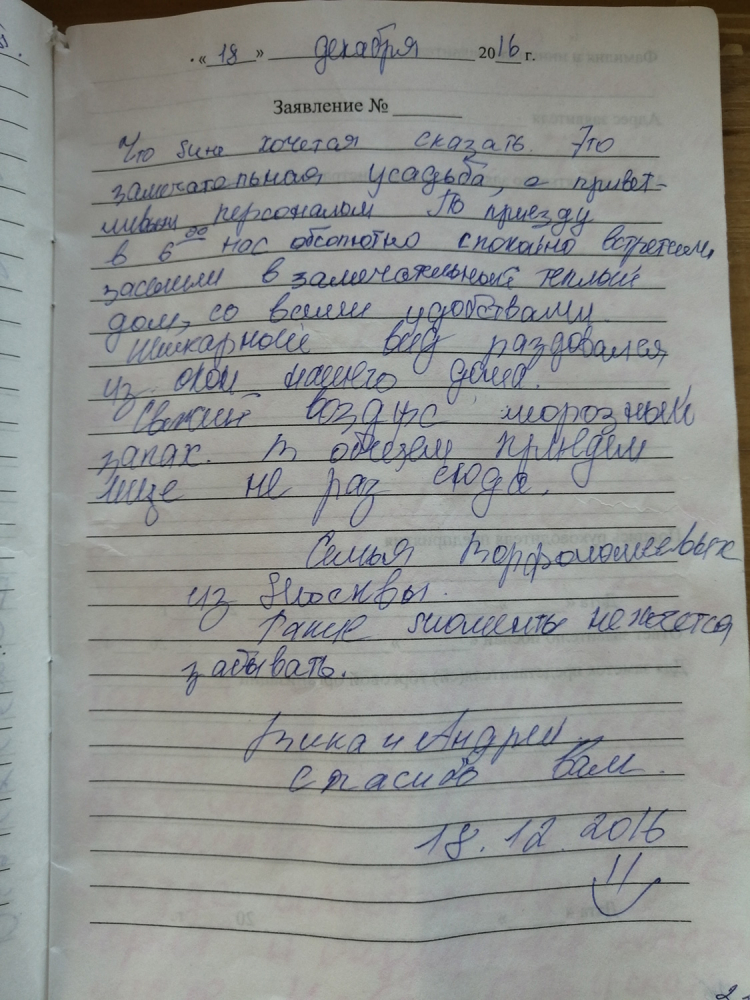 «18» декабря 2016 г.
Заявление №
Что хочется сказать. Это
замечательная усадьба, с привет-
ливым персоналом По приезду
в 6⁰⁰ нас абсолютно спокойно встретили,
заселили в замечательный теплый
дом, со всеми удобствами
Шикарный вид раздовался
из окон нашего дома.
Свежий воздух морозный
запах. В общем приедем
еще не раз сюда.
Семья Варфоломеевых
из Москвы.
Такие моменты не хочется
забывать.
Вика и Андрей
спасибо вам.
18.12.2016